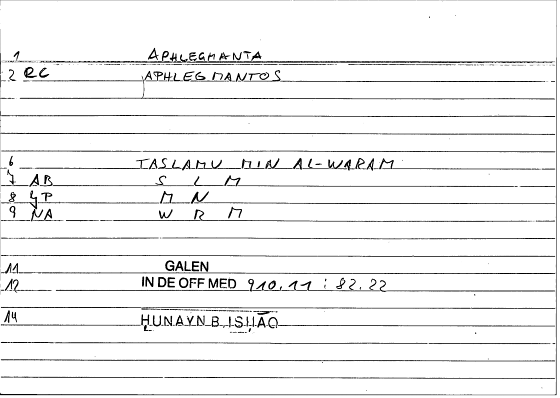 1 APHLEGMANTA
2 RC APHLEGMANTOS
6 TASLAMU MIN AL-WARAM
7 AB S L M
8 YP M N
9 NA W R M
11 GALEN
12 IN DE OFF MED 910.11 : 82.22
14 ḤUNAYN B. ISḤĀQ